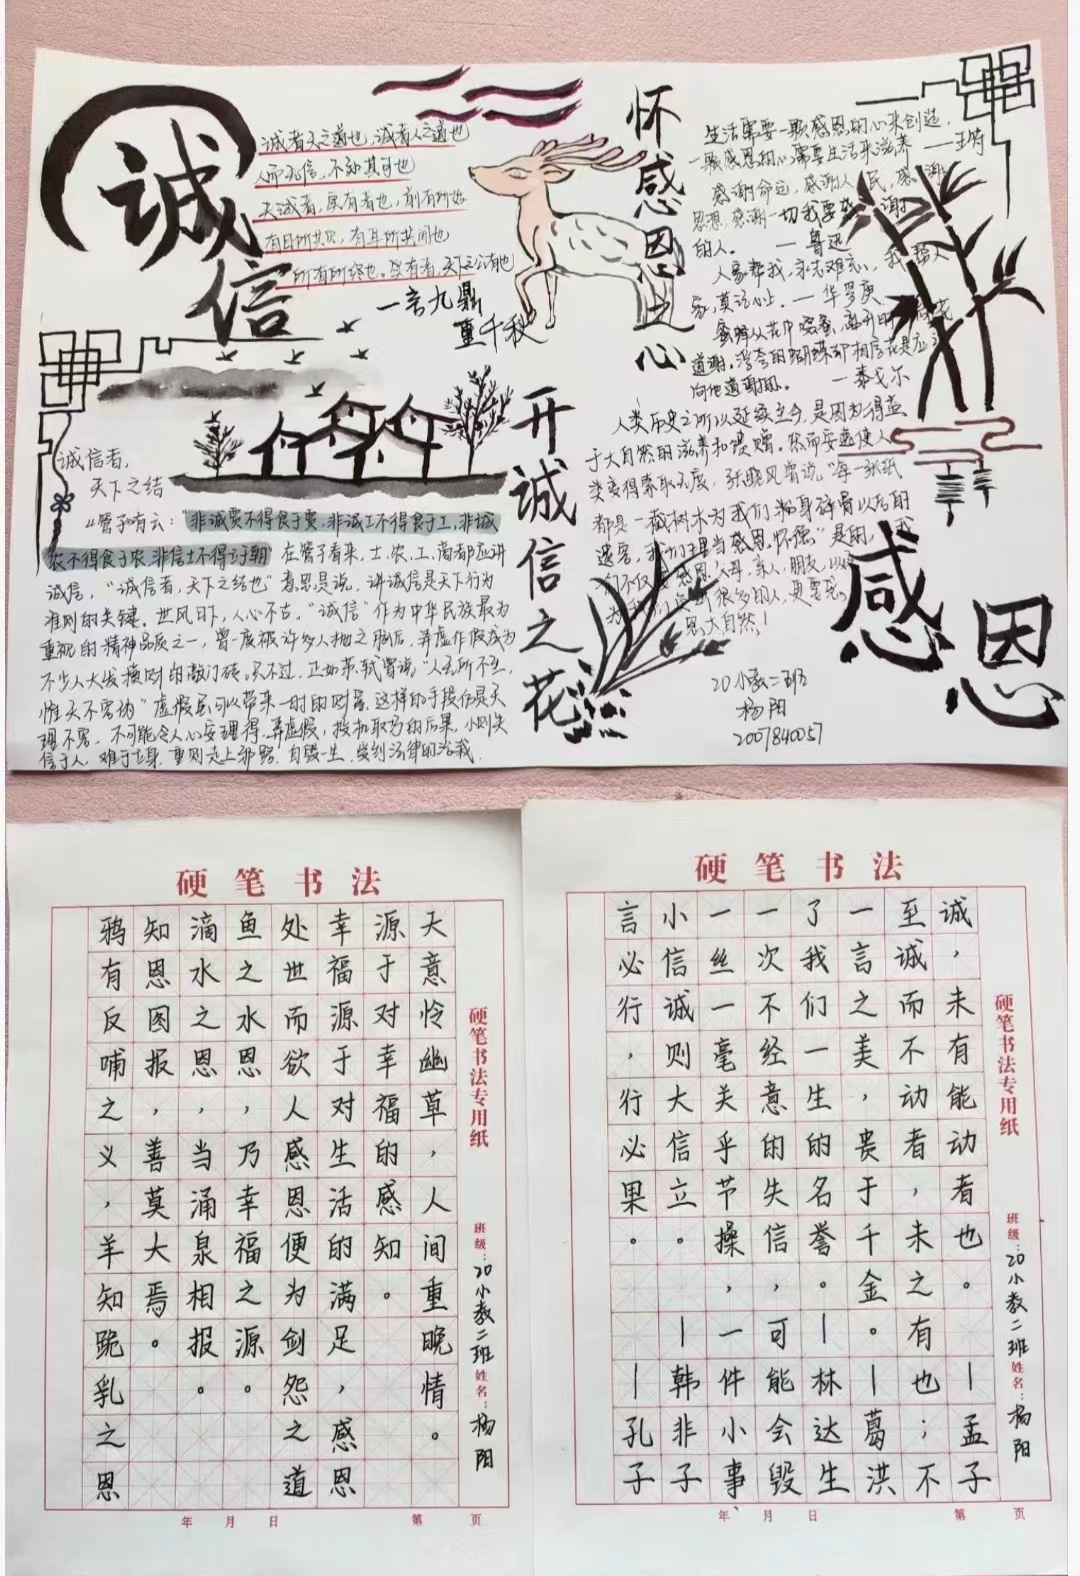 诚信
诚者天之道也，诚者人之道也
人而无信，不知其可也
有目所共见，有耳所共闻也
一言九鼎
重千秋
怀感恩之心
生活需要一颗感恩的心来创造，
一颗感恩的心需要生活来滋养 —王符
感谢命运，感谢人民，感谢
思想，感谢一切我要感谢
的人。 —鲁迅
人家帮我，永志难忘，我帮人
家，莫记心上。—华罗庚
蜜蜂从花中啜蜜，离开时
道谢。浮夸的蝴蝶却相信花是应
向他道谢的。 —泰戈尔
人类历史之所以延续至今，是因为得益
于大自然的滋养和馈赠。然而安逸使人
类变得索取无度，张晓风曾说，“每一张纸
都是一截树木为我们粉身碎骨以后的
遗容，我们理当感恩怀德”是的，我
们不仅要感恩父母，亲人，朋友，以及
恩大自然！
开诚信之花
诚信者，
天下之结
《管子》有云：“非诚贾不得食于贾，非诚工不得食于工，非诚
农不得食于农，非信士不得立于朝”在管子看来，士、农、工、商者都应讲
诚信，“诚信者，天下之结也”意思是说，讲诚信是天下行为
准则的关键。世风日下，人心不古，“诚信”作为中华民族最为
重视的精神品质之一，曾一度被许多人抛之脑后，弄虚作假成为
不少人大发横财的敲门砖。只不过，正如苏轼曾说，“人无所不至，
惟天不容伪”虚假虽可以带来一时的财富，这样的手段仍是天
理不容，不可能令人心安理得，弄虚假，投机取巧的后果，小则失
信于人，难于立身，重则走上邪路，自毁一生，受到法律的治裁
感恩
20小教二班
杨阳
2007840057
硬笔书法
天意怜幽草，人间重晚情。
源于对幸福的感知。
幸福源于对生活的满足，感恩
处世而欲人感恩便为剑怨之道
鱼之水恩，乃幸福之源。
滴水之恩，当涌泉相报。
知恩图报，善莫大焉。
鸦有反哺之义，羊知跪乳之恩
硬笔书法专用纸
班级：20小教二班 姓名：杨阳
年 月 日 第 页
硬笔书法
诚，未有能动者也。—孟子
至诚而不动者，未之有也；不
一言之美，丧于千金。—葛洪
了我们一生的名誉。—林达生
一次不经意的失信，可能会毁
一丝一毫关乎节操，一件小事、
小信诚则大信立。—韩非子
言必行，行必果。—孔子
硬笔书法专用纸
班级：20小教二班 姓名：杨阳
年 月 日 第 页